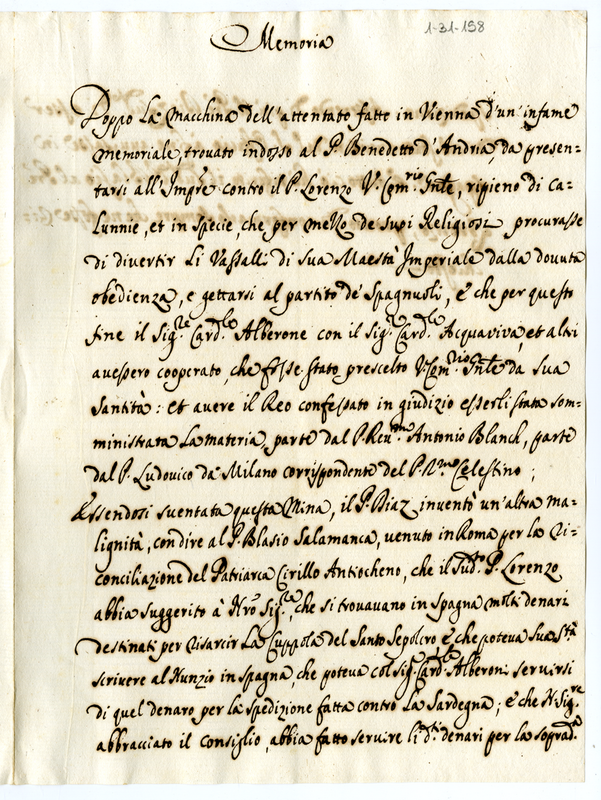 1-31-158
Memoria
Doppo La Macchina dell'attentato fatto in Vienna d'un infame
memoriale, trovato indosso al P. Benedetto d'Andria, da presen-
tarsi all'Impre contro il P. Lorenzo V. Comrio Gnle, ripieno di Ca-
Lunnie, et in specie che per mezzo de' suoi Religiosi procurasse
di divertir Li Vassalli di sua Maestà Imperiale dalla dovuta
obedienza, e gettarsi al partito de' Spagnuoli, e che per questo
fine il Sigre Cardle Alberone con il Sigr Cardle Acquaviva, et altri
avessero cooperato, che fosse stato prescelto V. Comrio Gnle da sua
Santità: et avere il Reo confessato in giudizio esserli stata som-
ministrata La materia, parte dal P. Reumo Antonio Blanch, parte
dal P. Ludovico da Milano corrispondente del P. Rmo Celestino;
Essendosi sventata questa Mina, il P. Diaz inventò un'altra ma-
lignità, con dire al P. Blasio Salamanca, venuto in Roma per la Ri-
conciliazione del Patriarca Cirillo Antiocheno, che il Sudto P. Lorenzo
abbia suggerito à Nro Sigre, che si trovavano in Spagna molti denari
destinati per risarcir La Cuppola del Santo Sepolcro e che poteva Sua Stà
scrivere al Nunzio in Spagna, che poteva col Sigr Cardle Alberoni servirsi
di quel denaro per la spedizione fatta contro La Sardegna; e che N. Sigre
abbracciato il consiglio, abbia fatto servire li dti denari per la sopradta